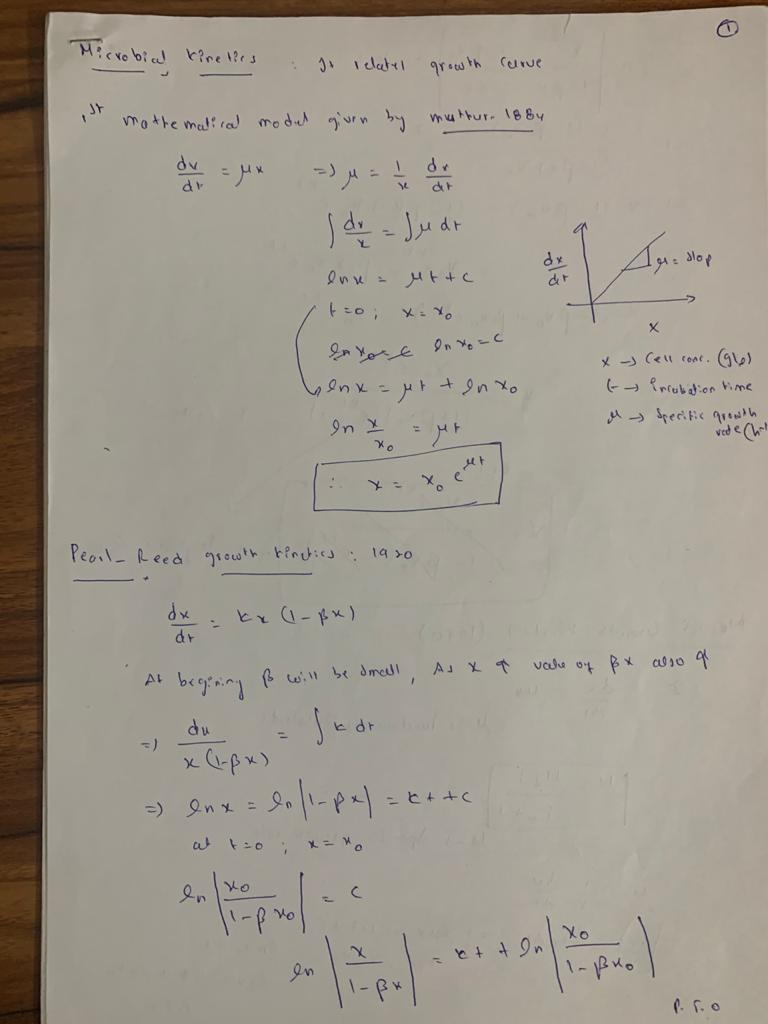 ①
Microbial kinetics : It relates growth curve
1st mathematical model given by Malthus - 1884
dx/dt = μx ⇒ μ = 1/x dx/dt
∫ dx/x = ∫ μ dt
ln x = μt + c
t=0 ; x = x₀
ln x₀ = c ln x₀ = c
ln x = μt + ln x₀
ln x/x₀ = μt
∴ x = x₀ e^μt
dx/dt
μ = slop
x
x → Cell conc. (g/l)
t → Incubation time
μ → Specific growth
rate (h⁻¹
Pearl-Reed growth kinetics : 1920
dx/dt = kx (1-βx)
At begining β will be small, As x ↑ value of βx also ↑
⇒ dx/x(1-βx) = ∫ k dt
⇒ ln x = ln |1-βx| = kt + c
at t=0 ; x = x₀
ln |x₀/1-βx₀| = c
ln |x/1-βx| = kt + ln |x₀/1-βx₀|
P.T.O